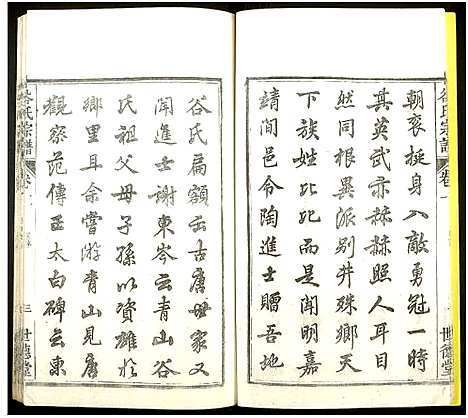 谷氏宗譜
卷一
世德堂
朝衮挺身入敵勇冠一時
其英武赤赫赫照人耳目
然同根異派別井殊鄉天
下族姓比比而是聞明嘉
靖間邑令陶進士贈吾地
谷氏扁額云古唐世家又
聞進士謝東岑云青山谷
氏祖父母子孫以資雄於
鄉里且余嘗游青山見唐
觀察范傳正太白碑云東
谷氏宗譜
三
世德堂